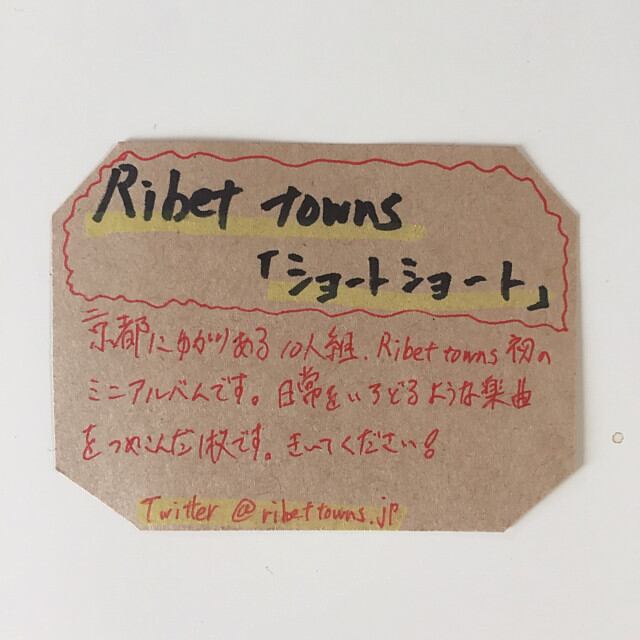 Ribet towns
「ショートショート」
京都にゆかりある10人組、Ribet towns 初の
ミニアルバムです。日常をいろどるような楽曲
をつめこんだ1枚です。きいてください!
Twitter @ribettowns.jp